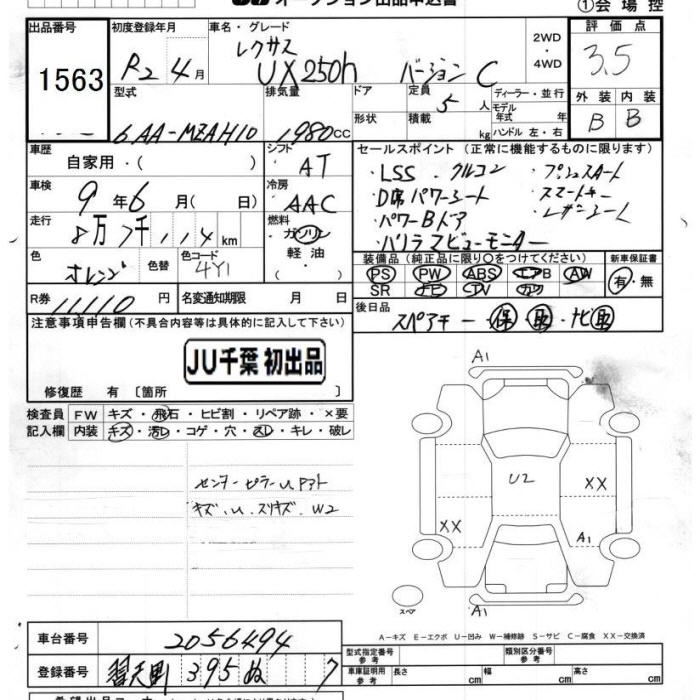 オークション出品申込書 ①会場控
出品番号 1563
初度登録年月 R2 4月
車名・グレード レクサス UX250h バージョンC
2WD・4WD
評価点 3.5
型式 6AA-MZAH10
排気量 1980cc
ドア 形状
定員 5人
積載 kg
ディーラー・並行
モデル年式 年
ハンドル 左・右
外装 B
内装 B
車歴 自家用・( )
シフト AT
セールスポイント (正常に機能するものに限ります)
・LSS ・クルコン ・プッシュスタート
・D席パワーシート ・スマートキー
・パワーBドア ・レザーシート
・パノラマビューモニター
車検 9年6月(日)
冷房 AAC
走行 8万7千,114km
燃料 ガソリン 軽油・
色 オレンジ
色替
色コード 4Y1
装備品 (純正品に限り○をつけてください)
PS PW ABS エアB AW
SR ナビ TV カワ
新車保証書 有・無
R券 11,110円
名変通知期限 月 日
後日品 スペアキー・保・取・ナビ取
注意事項申告欄 (不具合内容等は具体的に記入して下さい)
JU千葉 初出品
修復歴 有 〔箇所 〕
検査員記入欄
FW キズ・飛石・ヒビ割・リペア跡・×要
内装 キズ・汚レ・コゲ・穴・スレ・キレ・破レ
センターピラーU
キズ、U、スリキズ、W2
A1
U2
XX
XX
A1
A1
スペア
A－キズ E－エクボ U－凹み W－補修跡 S－サビ C－腐食 XX－交換済
車台番号 2056494
登録番号 395 ぬ 7
型式指定番号 参考
類別区分番号 参考
車庫証明用 参考 長さ cm 幅 cm 高さ cm
希望出品コーナー